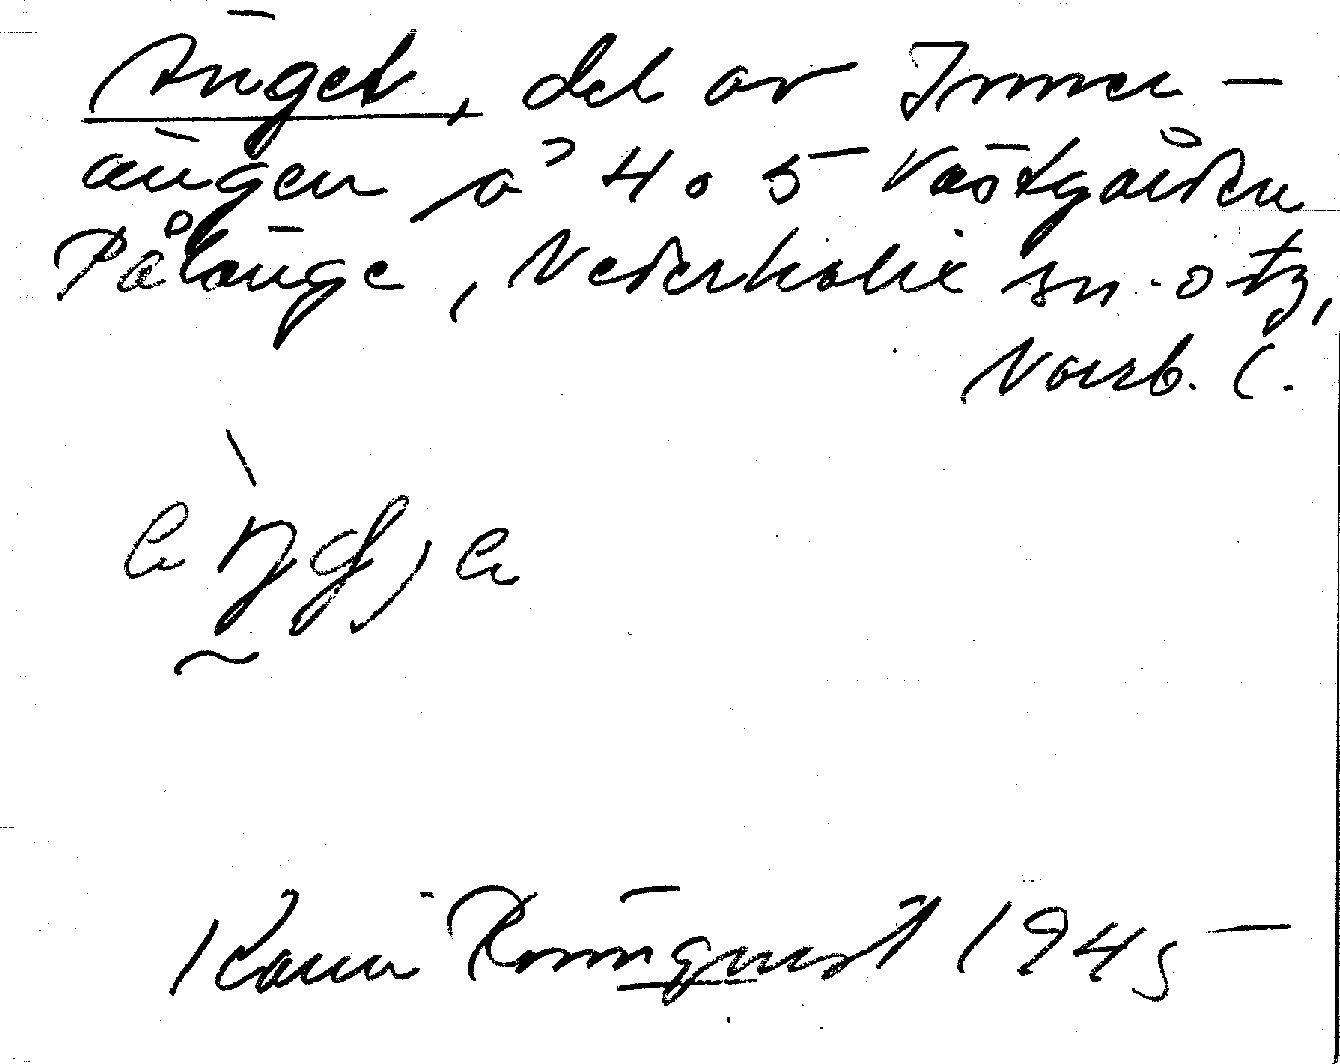 Änget, del av Inner-
ängen å 4 o 5 Västgården
Pålänge, Nederkalix sn. o tg,
Norrb. l.
Karin Rönnqvist 1945